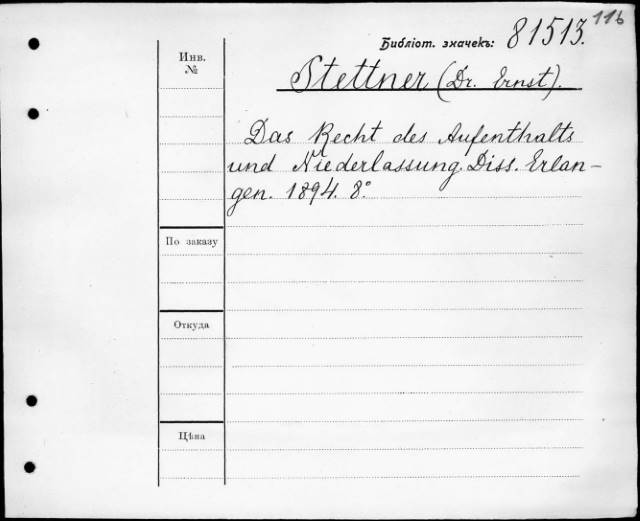 116
Библіот. значекъ: 81513.
Инв.
№
Stettner (Dr. Ernst).
Das Recht des Aufenthalts
und Niederlassung. Diss. Erlan-
gen. 1894. 8°
По заказу
Откуда
Цѣна